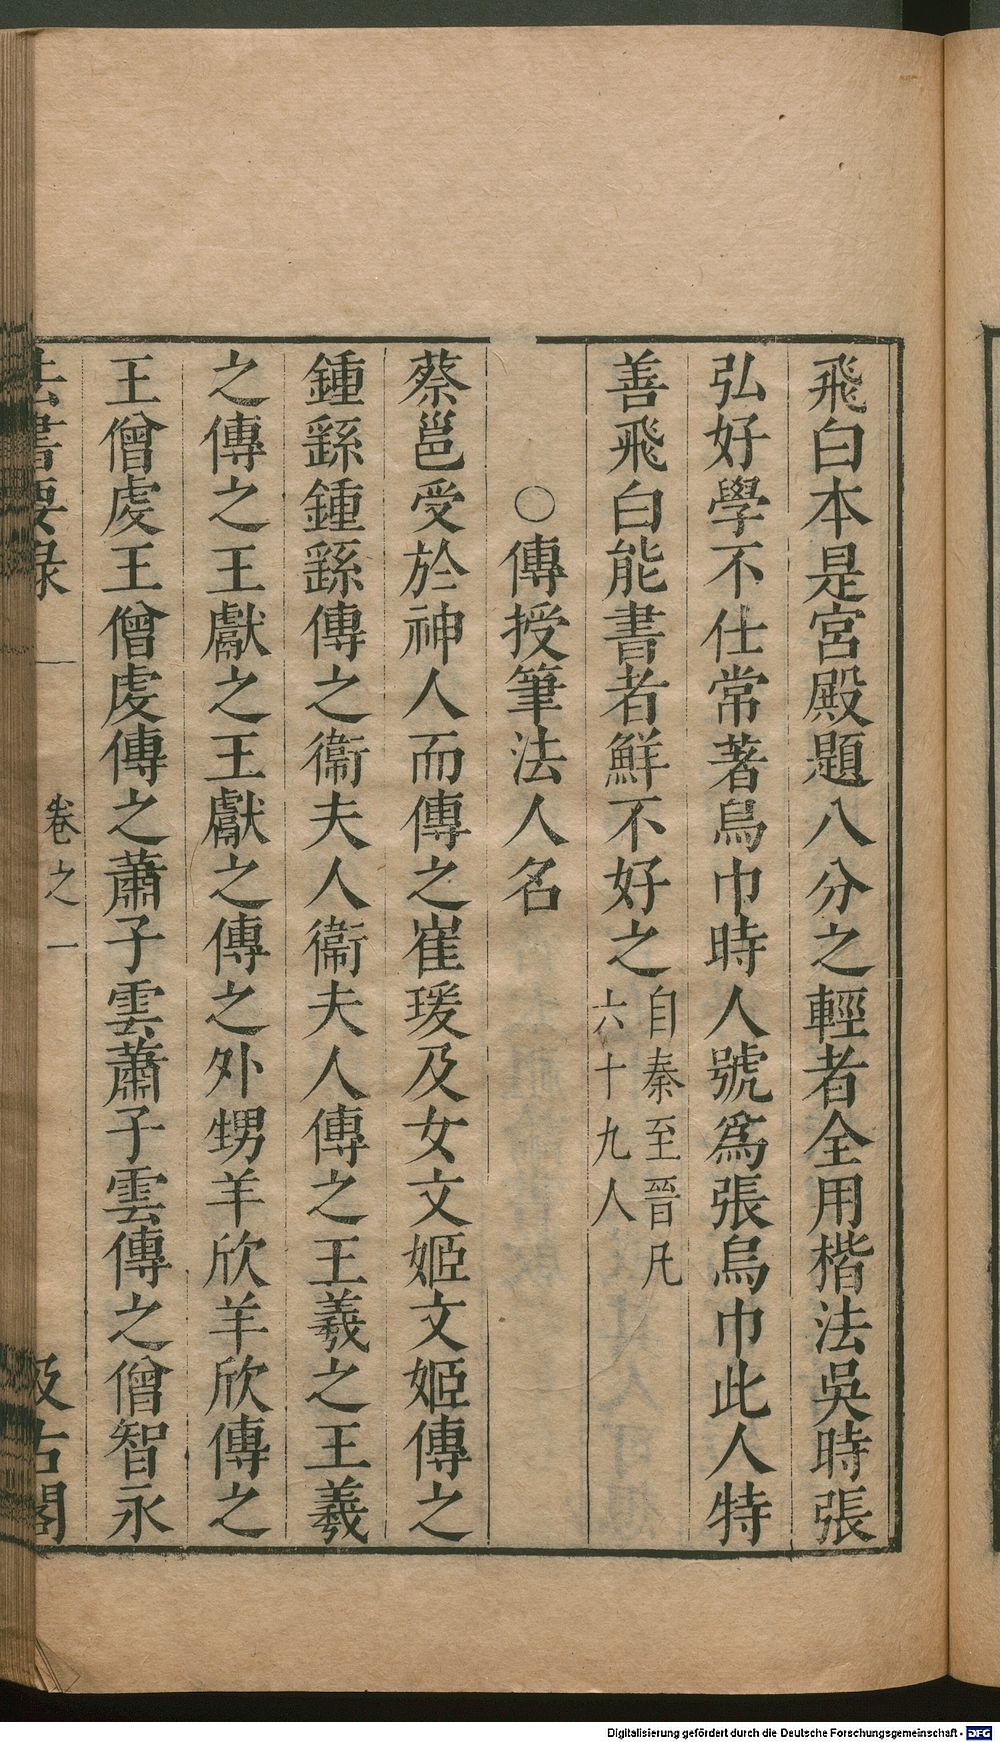 飛白本是宮殿題八分之輕者全用楷法吳時張
弘好學不仕常著烏巾時人號爲張烏巾此人特
善飛白能書者鮮不好之
自秦至晉凡
六十九人
○傳授筆法人名
蔡邕受於神人而傳之崔瑗及女文姬文姬傳之
鍾繇鍾繇傳之衞夫人衞夫人傳之王羲之王羲
之傳之王獻之王獻之傳之外甥羊欣羊欣傳之
王僧虔王僧虔傳之蕭子雲蕭子雲傳之僧智永
法書要錄 卷之一 汲古閣
Digitalisierung gefördert durch die Deutsche Forschungsgemeinschaft - DFG